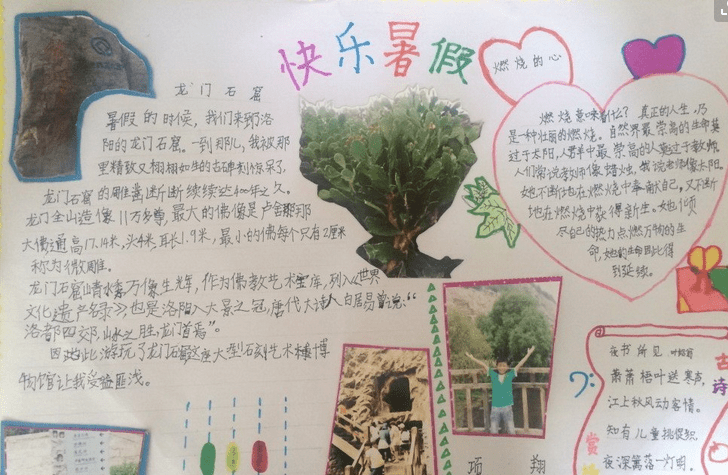 快乐暑假
龙门石窟
暑假的时候，我们来到洛
阳的龙门石窟。一到那儿，我被那
里精致又栩栩如生的古碑刻惊呆了，
龙门石窟的雕凿断断续续达400年之久。
龙门全山造像11万多尊，最大的佛像是卢舍那
大佛通高17.14米，头4米，耳长1.9米，最小的佛每个只有2厘米
称为微雕。
龙门石窟山清水秀万像生辉，作为佛教艺术宝库，列入《世界
文化遗产名录》也是洛阳八大景之冠，唐代大诗人白居易曾说：“
洛都四郊，山水之胜，龙门首焉”。
因此此游玩了龙门石窟这座大型石刻艺术博
物馆让我受益匪浅。
燃烧的心
燃烧意味着什么？真正的人生，乃
是一种壮丽的燃烧。自然界最崇高的生命莫
过于太阳，人群中最崇高的人莫过于教师，
人们常说教师像蜡烛，我说老师像太阳
她不断地在燃烧中奉献自己，又不断
地在燃烧中获得新生。她倾
尽自己的热力点燃万物的生
命，她的生命因此得
到延续。
古诗
赏
夜书所见 叶绍翁
萧萧梧叶送寒声，
江上秋风动客情。
知有儿童挑促织，
夜深篱落一灯明。
项 翔